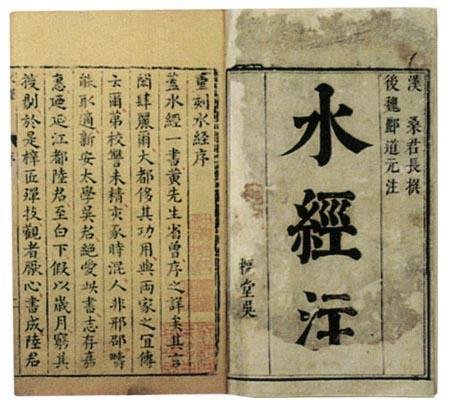 漢 桑君長撰
後魏酈道元注
水經注
堂吳
重刻水經序
蓋水經一書黃先生省曾序之詳矣其言
閎肆麗爾大都侈其功用與兩家之宜傳
云爾第校讐未精亥豕時混人非邢邵疇
能取適新安太學吳君絕愛此書志存嘉
惠迺延江都陸君至白下假以歲月窮其
剔於是梓匠殫技觀者厭心書成陸君